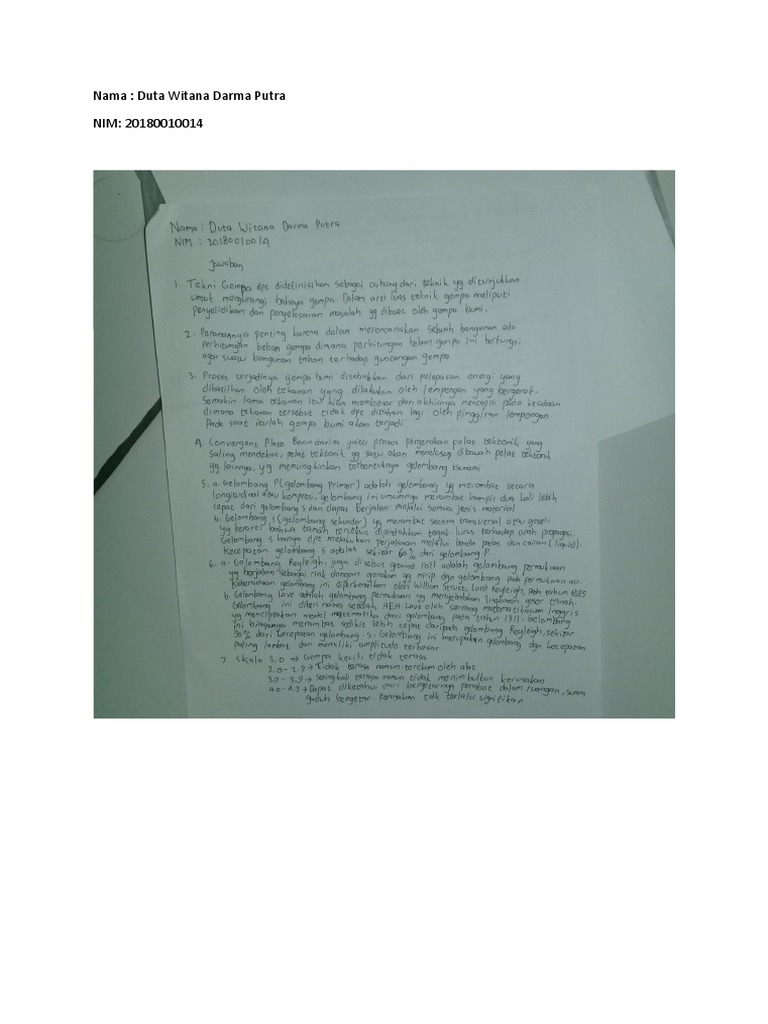 Nama : Duta Witana Darma Putra
NIM: 20180010014
Nama : Duta Witana Darma Putra
NIM : 20180010014
Jawaban
1. Tekni Gempa dpt didefinisikan sebagai cabang dari teknik yg ditunjukkan
untuk mengurangi bahaya gempa. Dalam arti luas teknik gempa meliputi
penyelidikan dan penyelesaian masalah yg dibuat oleh gempa bumi.
2. Peranannya penting karena dalam merencanakan sebuah bangunan ada
perhitungan beban gempa dimana perhitungan beban gempa ini berfungsi
agar suatu bangunan tahan terhadap guncangan gempa
3. Proses terjadinya gempa bumi disebabkan dari pelepasan energi yang
dihasilkan oleh tekanan yang dilakukan oleh lempengan yang bergerak.
Semakin lama tekanan itu kian membesar dan akhirnya mencapai pada keadaan
dimana tekanan tersebut tidak dpt ditahan lagi oleh pinggiran lempengan.
Pada saat itulah gempa bumi akan terjadi
4. Convergent Plate Boundaries yaitu proses pergerakan pelat tektonik yang
saling mendekat, pelat tektonik yg satu akan menelusup dibawah pelat tektonik
yg lainnya, yg memungkinkan terbentuknya gelombang tsunami
5. a. Gelombang P (gelombang Primer) adalah gelombang yg merambat secara
longitudinal atau kompresi. gelombang ini umumnya merambat hampir dua kali lebih
cepat dari gelombang s dan dapat berjalan melalui semua jenis material
b. Gelombang s (gelombang sekunder) yg merambat secara transversal atau geser
yg berarti bahwa tanah tersebut dipindahkan tegak lurus terhadap arah propagasi.
Gelombang s hanya dpt melakukan perjalanan melalui benda padat dan cairan (liquid).
kecepatan gelombang s adalah sekitar 60% dari gelombang P.
6. a. Gelombang Rayleigh, juga disebut ground roll adalah gelombang permukaan
yg berjalan sebagai riak dengan gerakan yg mirip dgn gelombang pada permukaan air.
Keberadaan gelombang ini diperkenalkan oleh Willian Strutt, Lord Rayleigh, pada tahun 1885
b. Gelombang Love adalah gelombang permukaan yg menyebabkan lingkaran geser tanah.
Gelombang ini diberi nama setelah AEH Love oleh seorang matematikawan Inggris
yg menciptakan model matematika dari gelombang pada tahun 1911. Gelombang
ini biasanya merambat sedikit lebih cepat daripada gelombang Rayleigh, sekitar
90% dari kecepatan gelombang S. Gelombang ini merupakan gelombang dgn kecepatan
paling lambat dan memiliki amplitudo terbesar
7. Skala 2.0 → Gempa kecil, tidak terasa
2.0 - 2.9 → Tidak terasa namun terekam oleh alat
3.0 - 3.9 → Seringkali terasa namun tidak menimbulkan kerusakan
4.0 - 4.9 → Dapat diketahui dari bergetarnya perabot dalam ruangan, suara
gaduh bergetar. Kerusakan tdk terlalu signifikan